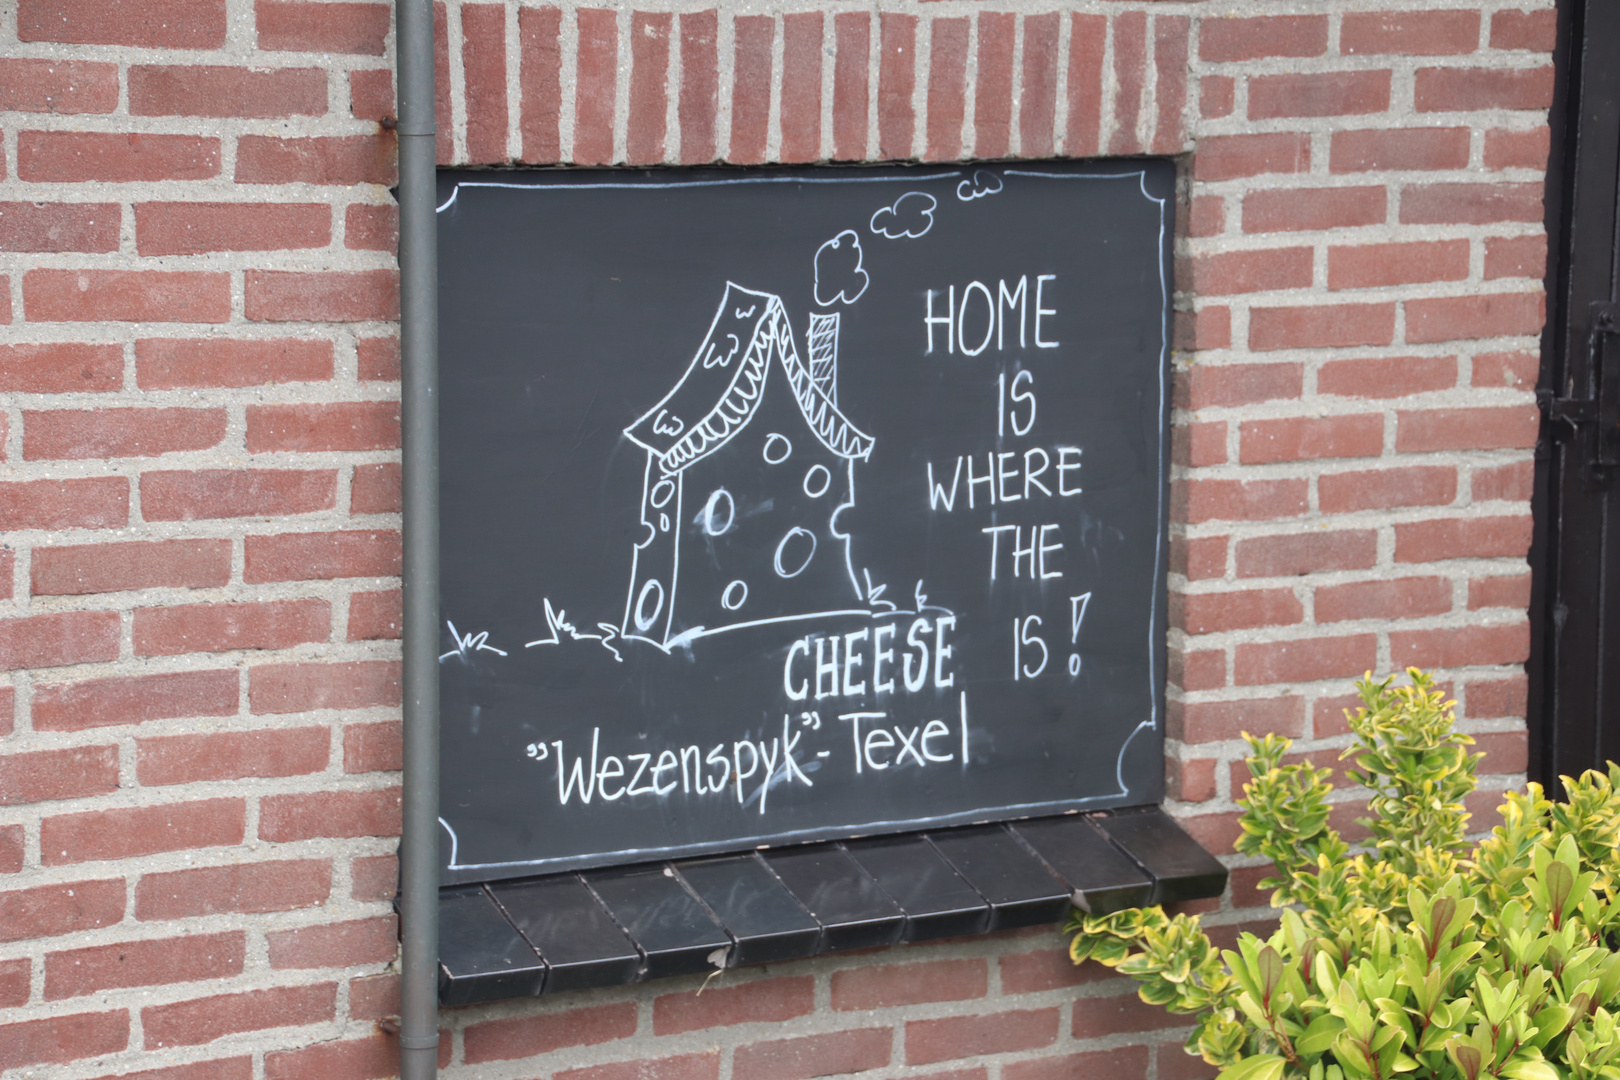 HOME
IS
WHERE
THE
CHEESE IS!
"Wezenspyk"- Texel